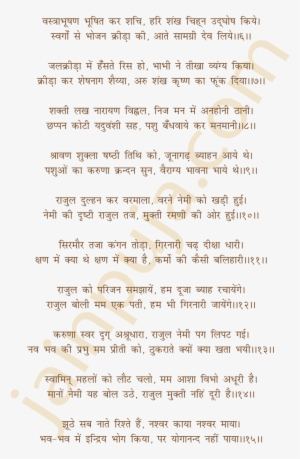 वस्त्राभूषण भूषित कर शचि, हरि शंख चिह्न उद्घोष किये।
स्वर्गों से भोजन क्रीड़ा की, आते सामग्री देव लिये॥६॥
जलक्रीड़ा में हँसते रिस हो, भाभी ने तीखा व्यंग्य किया।
क्रीड़ा कर शेषनाग शैय्या, अरु शंख कृष्ण का फूंक दिया॥७॥
शक्ती लख नारायण विह्वल, निज मन में अनहोनी ठानी।
छप्पन कोटी यदुवंशी सह, पशु बँधवाये कर मनमानी॥८॥
श्रावण शुक्ला षष्ठी तिथि को, जूनागढ़ ब्याहन आये थे।
पशुओं का करुणा क्रन्दन सुन, वैराग्य भावना भाये थे॥९॥
राजुल दुल्हन कर वरमाला, वरने नेमी को खड़ी हुई।
नेमी की दृष्टी राजुल तज, मुक्ती रमणी की ओर हुई॥१०॥
सिरमौर तजा कंगन तोड़ा, गिरनारी चढ़ दीक्षा धारी।
क्षण में क्या थे क्षण में क्या है, कर्मो की कैसी बलिहारी॥११॥
राजुल को परिजन समझायें, हम दूजा ब्याह रचायेंगे।
राजुल बोली मम एक पती, हम भी गिरनारी जायेंगे॥१२॥
करुणा स्वर दृग् अश्रूधारा, राजुल नेमी पग लिपट गई।
नव भव की प्रभु मम प्रीती को, ठुकराते क्यों क्या खता भयी॥१३॥
स्वामिन् महलों को लौट चलो, मम आशा विभो अधूरी है।
मानों नेमी यह बोल उठे, राजुल मुक्ती नहिं दूरी है॥१४॥
झूठे सब नाते रिश्ते हैं, नश्वर काया नश्वर माया।
भव-भव में इन्द्रिय भोग किया, पर योगानन्द नहीं पाया॥१५॥
jainpuja.com